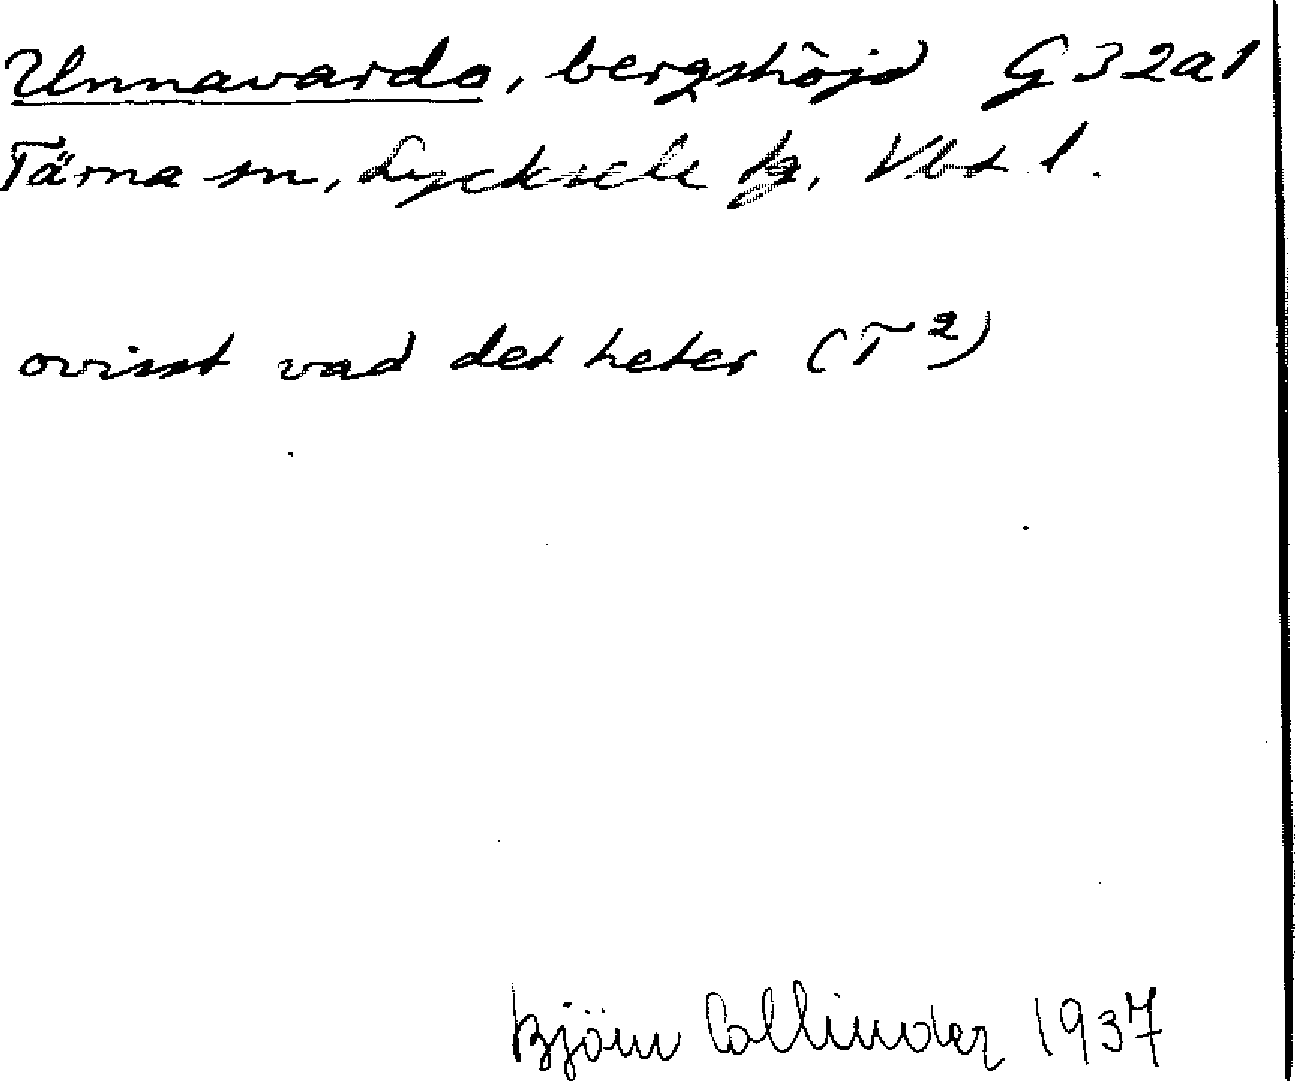 Unnavardo, bergshöjd G32a1
Tärna sn, Lycksele lg, Vbt l.
ovisst vad det heter (T²)
Björn Collinder 1937